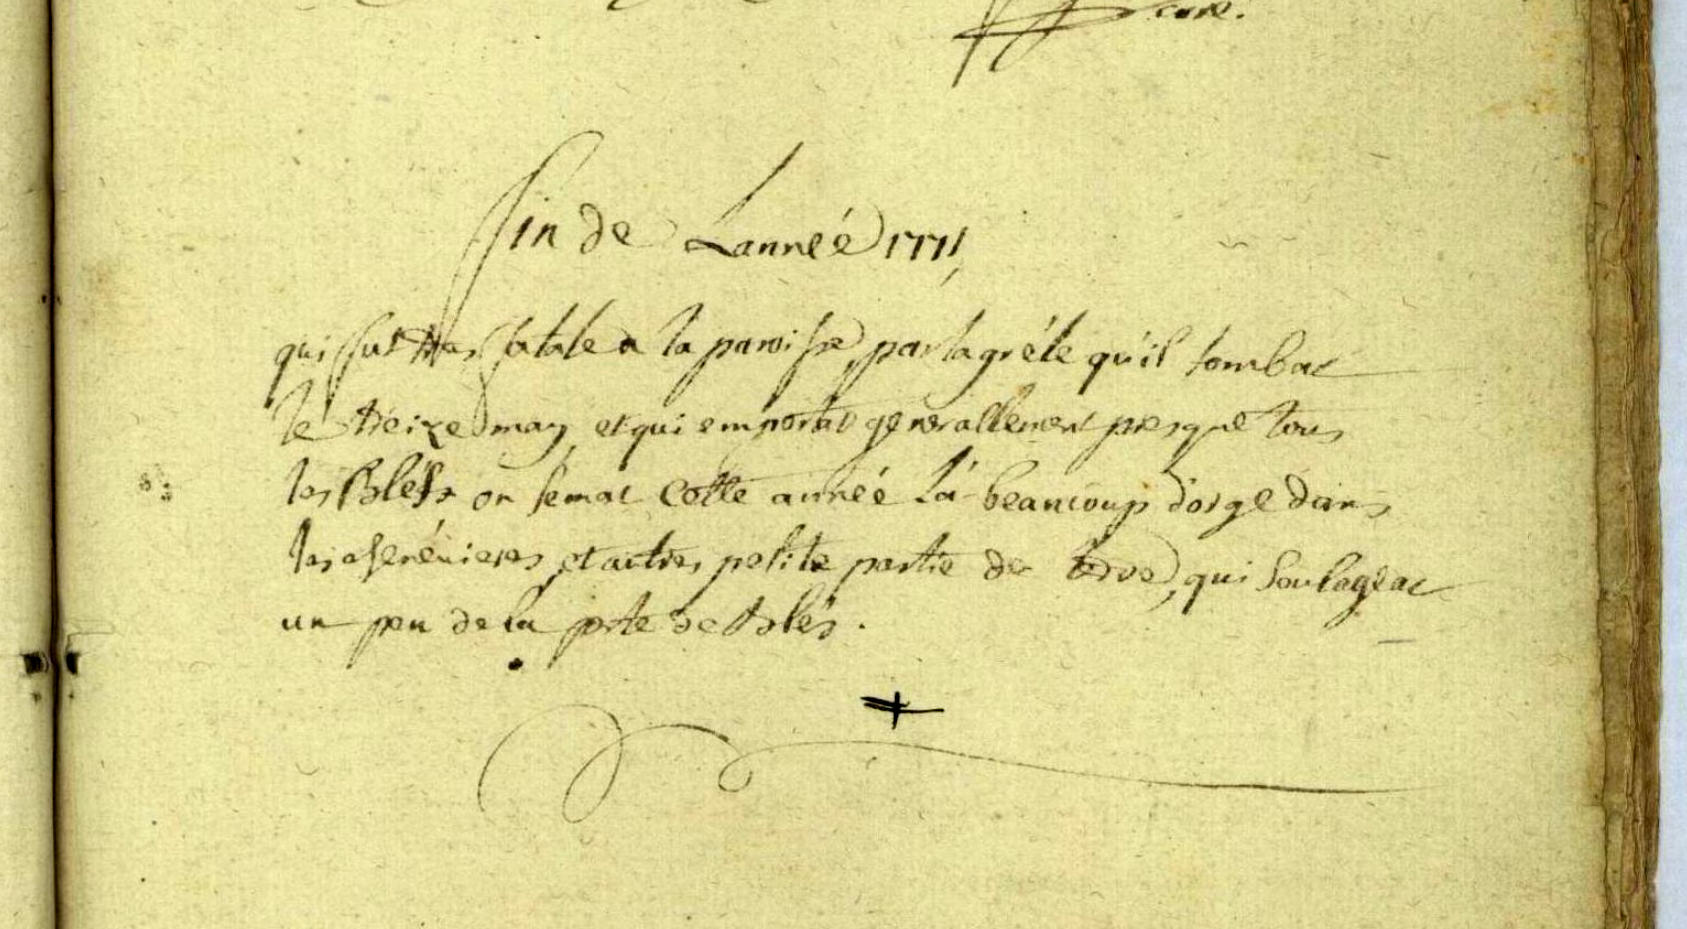 curé.
fin de Lannéé 1771
qui fut tres fatale a la paroisse par la gréle qu'il tombat
le treize may et qui emportat generallement presque tous
les Bléds on semat cette annéé lá beaucoup d'orge dans
les chenévieres et autres petite partie de terre, qui soulageat
un peu de la perte des blés.